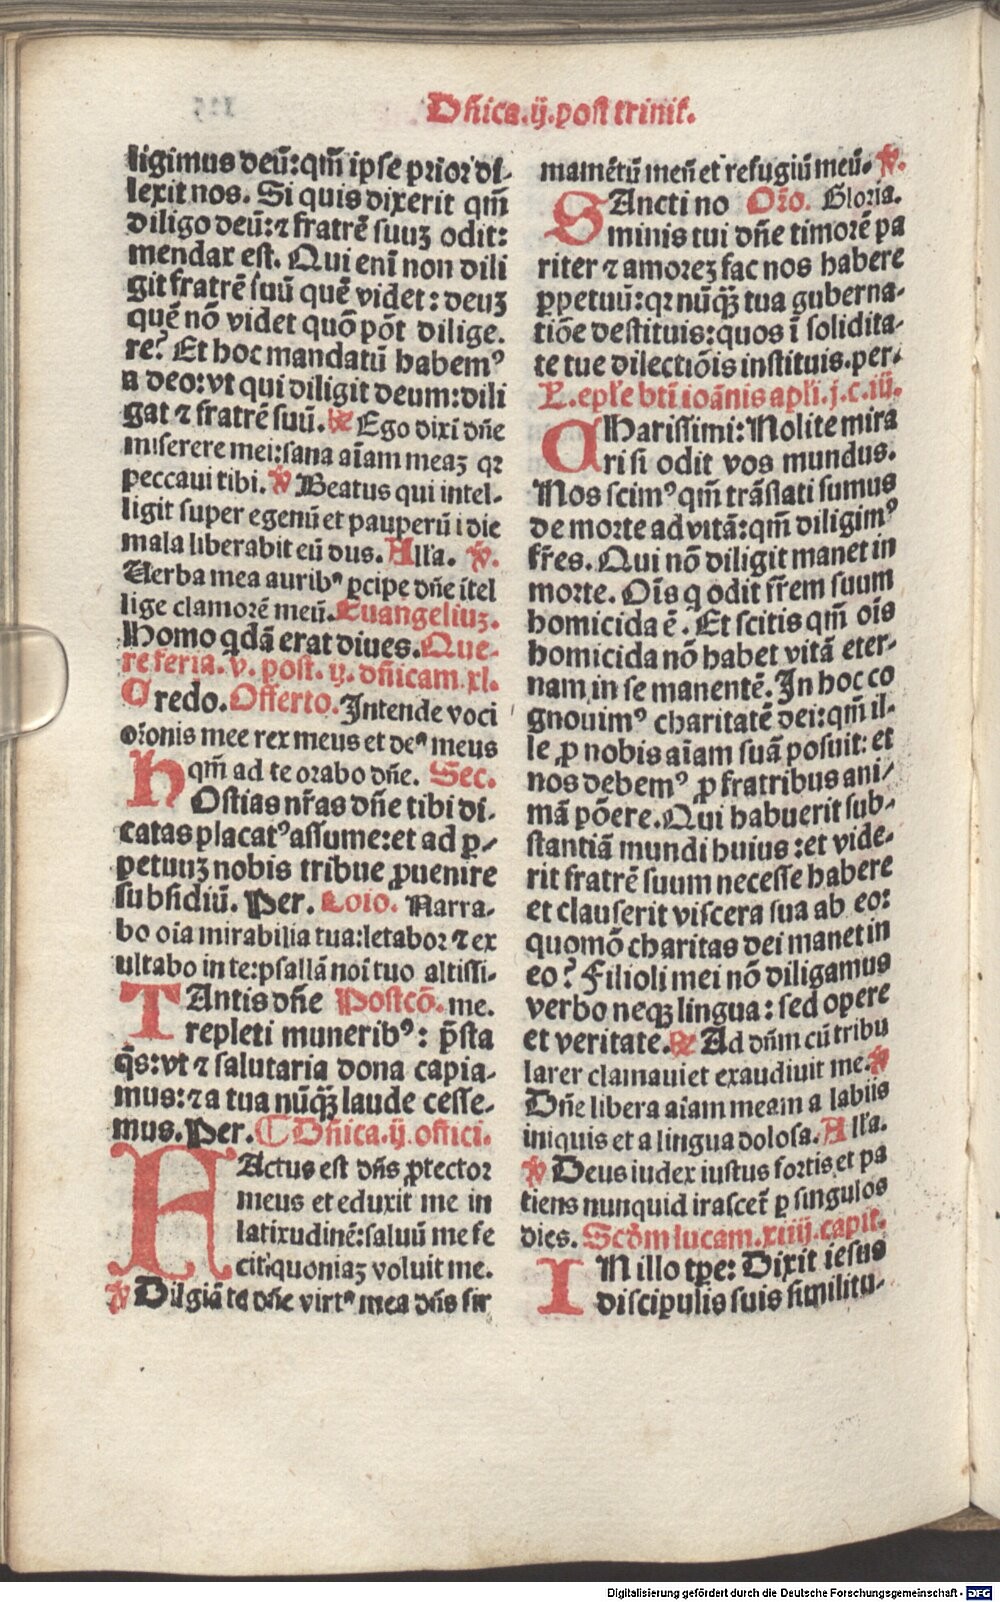 Dñica.ij.post trinit̃.
ligimus deũ:qm̃ ipse prior di-
lexit nos. Si quis dixerit qm̃
diligo deũ:⁊ fratrẽ suuʒ odit:
mendax est. Qui enĩ non dili
git fratrẽ suũ quẽ videt: deuʒ
quẽ nõ videt quõ põt dilige.
re? Et hoc mandatũ habemꝰ
a deo:vt qui diligit deum:dili
gat ⁊ fratrẽ suũ. ℟ Ego dixi dñe
miserere mei:sana aĩam meaʒ qꝛ
peccaui tibi. ℣ Beatus qui intel-
ligit super egenũ et pauperũ i die
mala liberabit eũ dus. Alla. ℣.
Uerba mea auribꝰ ꝑcipe dñe ĩtel
lige clamorẽ meũ. Euangeliuʒ.
Homo qdã erat diues. Que-
re feria. v. post. ij. dñicam.xl.
Credo. Offerto. Intende voci
or̃onis mee rex meus et deꝰ meus
qm̃ ad te orabo dñe. Sec.
HOstias nr̃as dñe tibi di-
catas placatꝰ assume:et ad ꝑ-
petuuʒ nobis tribue ꝓuenire
subsidiũ. Per. Cõio. Narra-
bo oia mirabilia tua:letabor ⁊ ex
ultabo in te:psallã noi tuo altissi-
TAntis dñe Postcõ. me.
repleti muneribꝰ: p̃sta
q̃s:vt ⁊ salutaria dona capia-
mus:⁊ a tua nũq̃ʒ laude cesse-
mus. Per. ¶ Dñica.ij. offici.
FActus est dñs ꝓtector
meus et eduxit me in
latitudinẽ:saluũ me fe
cit:quoniaʒ voluit me.
℣ Diligã te dñe virtꝰ mea dñs fir
mamẽtũ meũ et refugiũ meũ. ℣.
SAncti no Or̃o. Gloria.
minis tui dñe timorẽ pa
riter ⁊ amoreʒ fac nos habere
ꝑpetuũ:qꝛ nũq̃ʒ tua guberna-
tiõe destituis:quos ĩ solidita-
te tue dilectiõis instituis.per.
L. epl̃e bti ioãnis apl̃i.j.c.iij.
CHarissimi: Nolite mira
ri si odit vos mundus.
Nos scimꝰ qm̃ trãslati sumus
de morte ad vitã:qm̃ diligimꝰ
fr̃es. Qui nõ diligit manet in
morte. Oĩs q odit fr̃em suum
homicida ẽ. Et scitis qm̃ oĩs
homicida nõ habet vitã eter-
nam in se manentẽ. In hoc co
gnouimꝰ charitatẽ dei:qm̃ il-
le ꝓ nobis aĩam suã posuit: et
nos debemꝰ ꝓ fratribus ani-
mã põere. Qui habuerit sub-
stantiã mundi huius :et vide-
rit fratrẽ suum necesse habere
et clauserit viscera sua ab eo:
quomõ charitas dei manet in
eo? Filioli mei nõ diligamus
verbo neqʒ lingua: sed opere
et veritate. ℟ Ad dñm cũ tribu
larer clamaui et exaudiuit me. ℣
Dñe libera aĩam meam a labiis
iniquis et a lingua dolosa. All̃a.
℣ Deus iudex iustus fortis et pa
tiens nunquid irascet̃ ꝑ singulos
dies. Scd̃m lucam.xiiij.capit̃.
IN illo tp̃e: Dixit iesus
discipulis suis similitu-
Digitalisierung gefördert durch die Deutsche Forschungsgemeinschaft - DFG